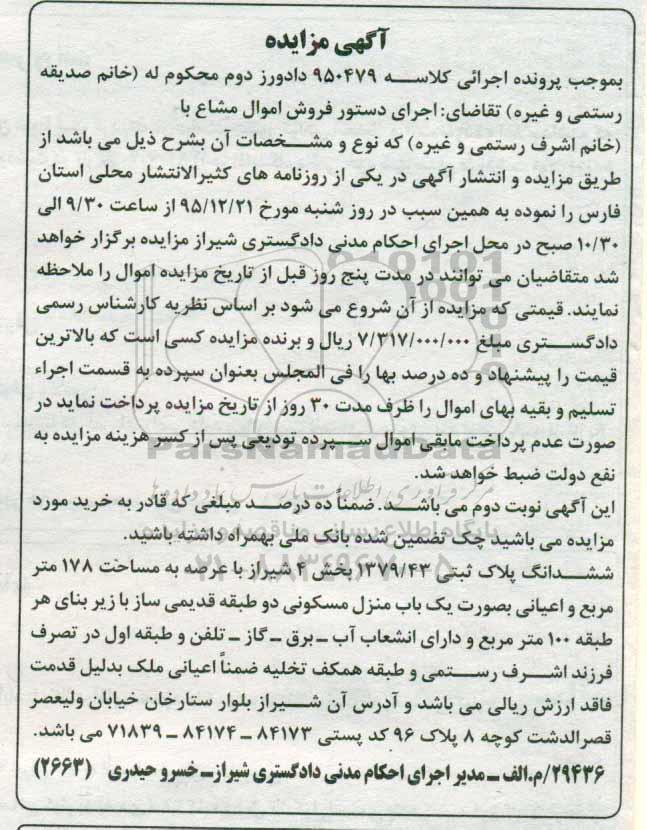 آگهی مزایده
بموجب پرونده اجرائی کلاسه ۹۵۰۴۷۹ دادورز دوم محکوم له (خانم صدیقه
رستمی و غیره) تقاضای: اجرای دستور فروش اموال مشاع با
(خانم اشرف رستمی و غیره) که نوع و مشخصات آن بشرح ذیل می باشد از
طریق مزایده و انتشار آگهی در یکی از روزنامه های کثیرالانتشار محلی استان
فارس را نموده به همین سبب در روز شنبه مورخ ۹۵/۱۲/۲۱ از ساعت ۹/۳۰ الی
۱۰/۳۰ صبح در محل اجرای احکام مدنی دادگستری شیراز مزایده برگزار خواهد
شد متقاضیان می توانند در مدت پنج روز قبل از تاریخ مزایده اموال را ملاحظه
نمایند. قیمتی که مزایده از آن شروع می شود بر اساس نظریه کارشناس رسمی
دادگستری مبلغ ۷/۳۱۷/۰۰۰/۰۰۰ ریال و برنده مزایده کسی است که بالاترین
قیمت را پیشنهاد و ده درصد بها را فی المجلس بعنوان سپرده به قسمت اجراء
تسلیم و بقیه بهای اموال را ظرف مدت ۳۰ روز از تاریخ مزایده پرداخت نماید در
صورت عدم پرداخت مابقی اموال سپرده تودیعی پس از کسر هزینه مزایده به
نفع دولت ضبط خواهد شد.
ParsNamadData
مرکز فرآوری اطلاعات پارس نماد داده ها
این آگهی نوبت دوم می باشد. ضمنا ده درصد مبلغی که قادر به خرید مورد
پایگاه اطلاع رسانی مناقصه و مزایده
مزایده می باشید چک تضمین شده بانک ملی بهمراه داشته باشید.
۰۲۱-۸۸۳۴۹۶۷۰-۵
ششدانگ پلاک ثبتی ۱۳۷۹/۴۳ بخش ۴ شیراز با عرصه به مساحت ۱۷۸ متر
مربع و اعیانی بصورت یک باب منزل مسکونی دو طبقه قدیمی ساز با زیر بنای هر
طبقه ۱۰۰ متر مربع و دارای انشعاب آب ـ برق ـ گاز ـ تلفن و طبقه اول در تصرف
فرزند اشرف رستمی و طبقه همکف تخلیه ضمناً اعیانی ملک بدلیل قدمت
فاقد ارزش ریالی می باشد و آدرس آن شیراز بلوار ستارخان خیابان ولیعصر
قصرالدشت کوچه ۸ پلاک ۹۶ کد پستی ۸۴۱۷۳ ـ ۸۴۱۷۴ ـ ۷۱۸۳۹ می باشد.
۲۹۴۳۶/م.الف ـ مدیر اجرای احکام مدنی دادگستری شیراز ـ خسرو حیدری (۲۶۶۳)